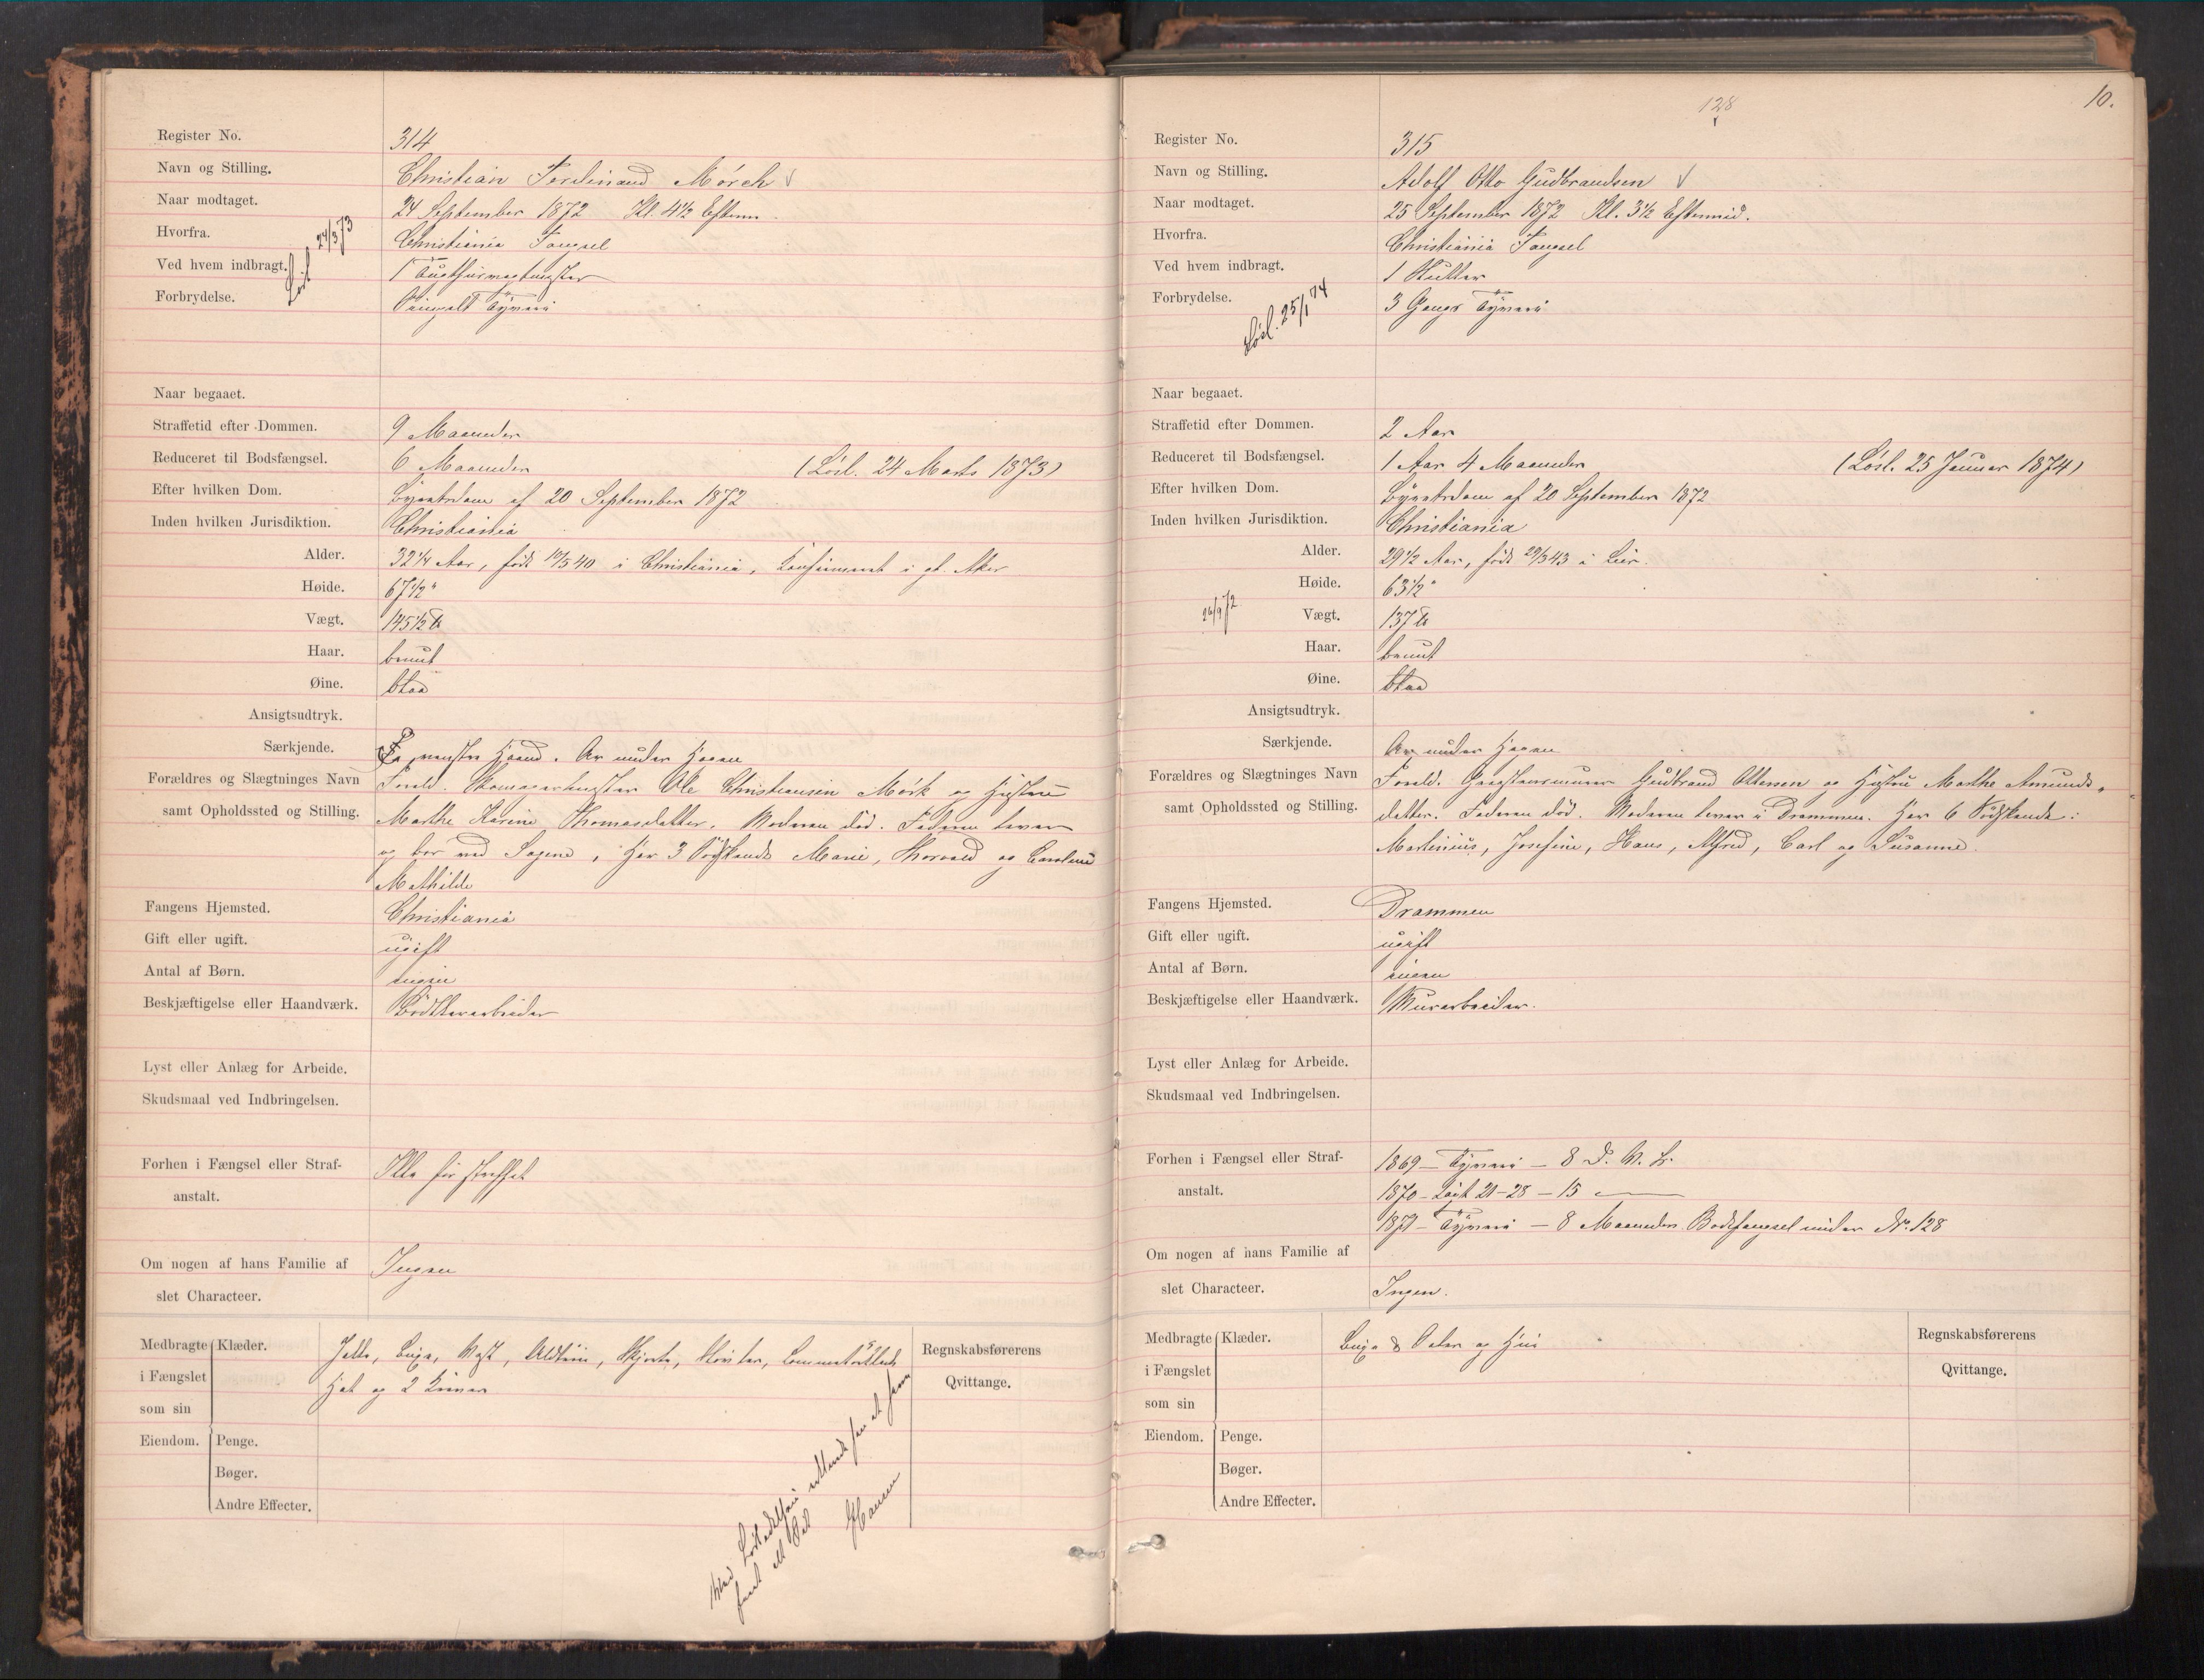 Register No. 314
Navn og Stilling. Christian Ferdinand Mörch
Naar modtaget. 24 September 1872 Kl. 4½ Efterm.
Hvorfra. Christiania Fangsel
24/3 73
Ved hvem indbragt. 1
Forbrydelse. Tyveri
Naar begaaet.
Straffetid efter Dommen. 9 Maaneder
Reduceret til Bodsfængsel. 6 Maaneder (Lösl. 24 Marts 1873)
Efter hvilken Dom. Byretsdom af 20 September 1872
Inden hvilken Jurisdiktion. Christiania
Alder. 32¼ Aar, födt 10/5 40 i Christiania, Konfirmeret i gl. Aker
Høide. 67½"
Vægt. 145½ ℔
Haar. brunt
Øine. blaa
Ansigtsudtryk.
Særkjende. venstre Haand. Ar under Hagen
Forældres og Slægtninges Navn Foræld. Ole Christiansen Mörk og Hustru
samt Opholdssted og Stilling. Marthe Karine Thomasdatter. Moderen död. Faderen lever
og bor ved Sagene, Har 3 Södskende Marie, Thorvald og Caroline
Mathilde
Fangens Hjemsted. Christiania
Gift eller ugift. ugift
Antal af Børn. ingen
Beskjæftigelse eller Haandværk. Bödkerarbeider
Lyst eller Anlæg for Arbeide.
Skudsmaal ved Indbringelsen.
Forhen i Fængsel eller Straf-
anstalt. Ikke för straffet
Om nogen af hans Familie af Ingen
slet Characteer.
Medbragte Klæder. Jakke, Buxe, Vest, Uldtröie, Skjorte, Stövler,
i Fængslet Hat og 2
som sin
Eiendom. Penge.
Bøger.
Andre Effecter.
Regnskabsførerens
Qvittange.
Hansen
10.
128
Register No. 315
Navn og Stilling. Adolf Otto Gudbrandsen
Naar modtaget. 25 September 1872 Kl. 3½ Eftermid.
Hvorfra. Christiania Fangsel
Ved hvem indbragt. 1
Forbrydelse. 3 Gangs Tyveri
Lösl. 25/1 74
Naar begaaet.
Straffetid efter Dommen. 2 Aar
Reduceret til Bodsfængsel. 1 Aar 4 Maaneder (Lösl. 25 Januar 1874)
Efter hvilken Dom. Byretsdom af 20 September 1872
Inden hvilken Jurisdiktion. Christiania
Alder. 29½ Aar, födt 29/3 43 i Lier.
Høide. 63½"
26/9 72
Vægt. 137 ℔
Haar. brunt
Øine. blaa
Ansigtsudtryk.
Særkjende. Ar under Hagen
Forældres og Slægtninges Navn Foræld. Gudbrand Ottersen og Hustru Marthe Amunds-
samt Opholdssted og Stilling. datter. Faderen död. Moderen lever i Drammen. Har 6 Södskende:
Martinius, Josefine, Hans, Alfred, Carl og Susanne.
Fangens Hjemsted. Drammen
Gift eller ugift. ugift
Antal af Børn. ingen
Beskjæftigelse eller Haandværk. Murarbeider.
Lyst eller Anlæg for Arbeide.
Skudsmaal ved Indbringelsen.
Forhen i Fængsel eller Straf- 1869 – Tyveri – 8 D. V. B.
anstalt. 1870 – 21–28 – 15
1871 – Tyveri – 8 Maaneder Bodsfangsel under No. 128
Om nogen af hans Familie af
slet Characteer. Ingen.
Medbragte Klæder. Buxe
i Fængslet
som sin
Eiendom. Penge.
Bøger.
Andre Effecter.
Regnskabsførerens
Qvittange.